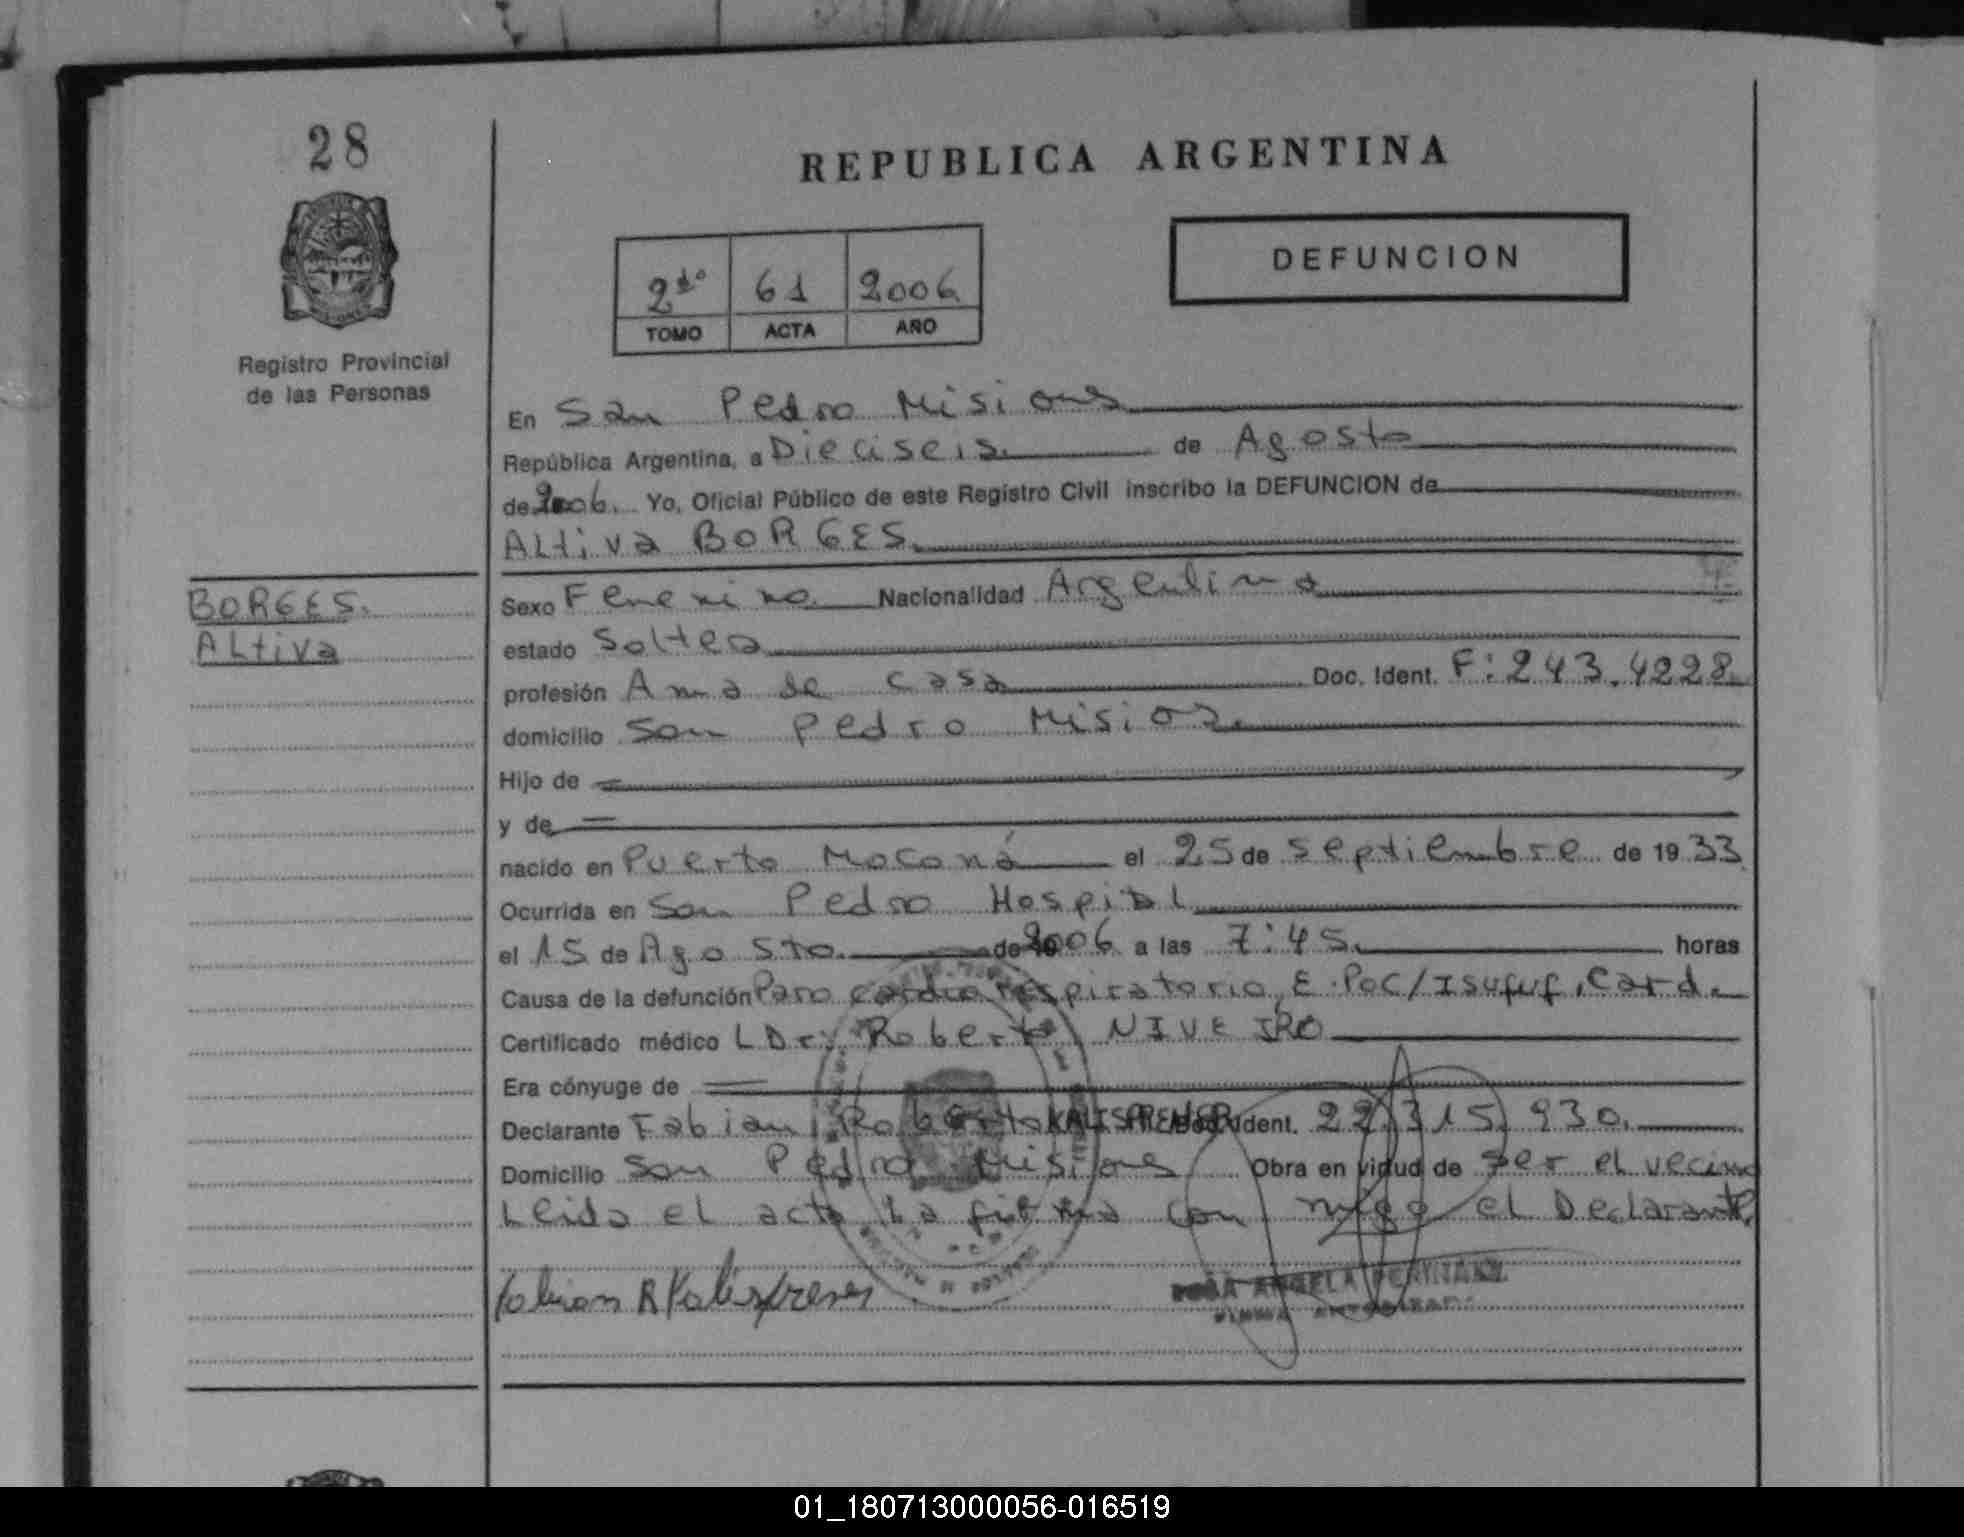 28
REPUBLICA ARGENTINA
DEFUNCION
2do 61 2006
TOMO ACTA AÑO
Registro Provincial
de las Personas
En San Pedro Misiones
República Argentina, a Dieciseis de Agosto
de 2006. Yo, Oficial Público de este Registro Civil inscribo la DEFUNCION de
ALtiva BORGES.
BORGES.
ALtiva
Sexo Femenino Nacionalidad Argentina
estado Soltera
profesión Ama de casa Doc. Ident. F: 243.4228.
domicilio San Pedro
Hijo de
y de
nacido en Puerto Moconá el 25 de septiembre de 1933
Ocurrida en San Pedro Hospital
el 15 de Agosto. de 2006 a las 7:45. horas
Causa de la defunción Paro cardio respiratorio, E.Poc/Isufuf, Card.
Certificado médico Dr: Roberto NIVEIRO
Era cónyuge de
Declarante Fabian Roberto KALISPRENER Ident. 22.315.930.
Domicilio San Pedro Misiones Obra en virtud de ser el vecino
Leida el acta La firma con migo el Declarante.
Fabian R
ANGELA
FIRMA AUTORIZADA
01_180713000056-016519